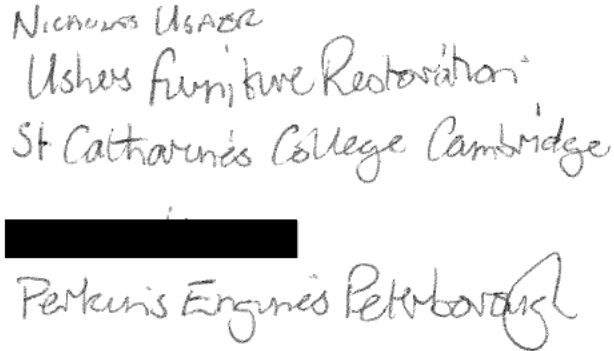 NICHOLAS USHER
Ushers Furniture Restoration
St Catharines College Cambridge
Perkins Engines Peterborough